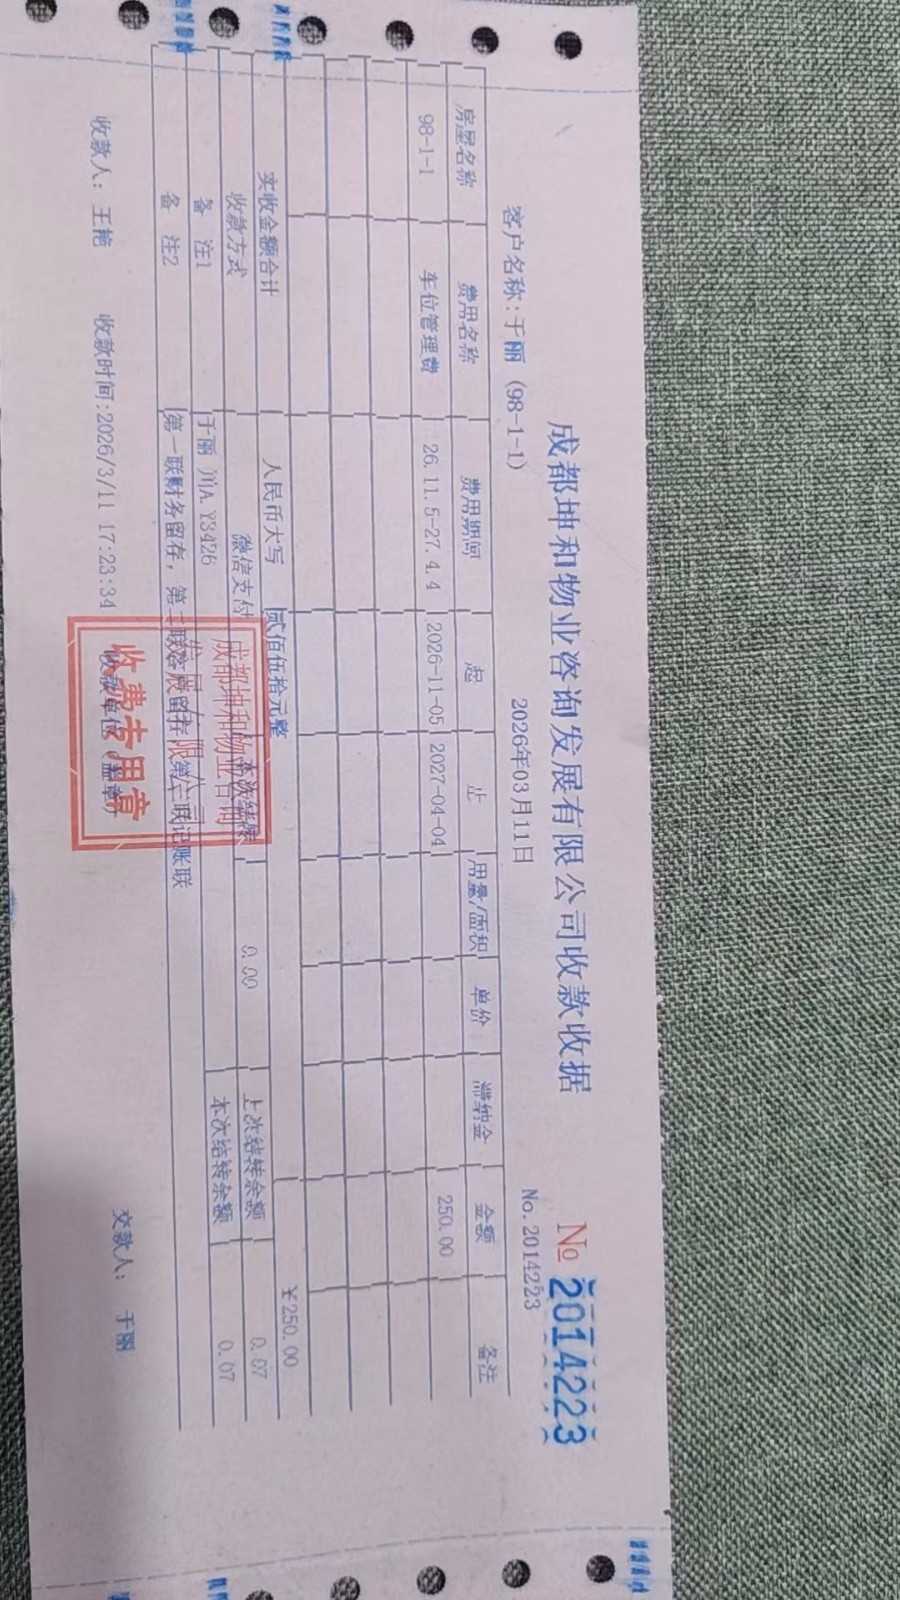 成都坤和物业咨询发展有限公司收款收据
№ 2014223
客户名称:于丽 (98-1-1)
2026年03月11日
No. 2014223
房屋名称 费用名称 费用期间 起 止 用量/面积 单价 滞纳金 金额 备注
98-1-1 车位管理费 26.11.5-27.4.4 2026-11-05 2027-04-04 250.00
实收金额合计 人民币大写 贰佰伍拾元整 ¥250.00
收款方式 微信支付 0.00 上次结转余额 0.07
备 注1 于丽 川A Y3426 本次结转余额 0.07
备 注2 第一联财务留存, 第二联客户留存 第三联记账联
收款人: 王艳 收款时间:2026/3/11 17:23:34 收款单位(盖章) 交款人: 于丽
成都坤和物业咨询
收费专用章